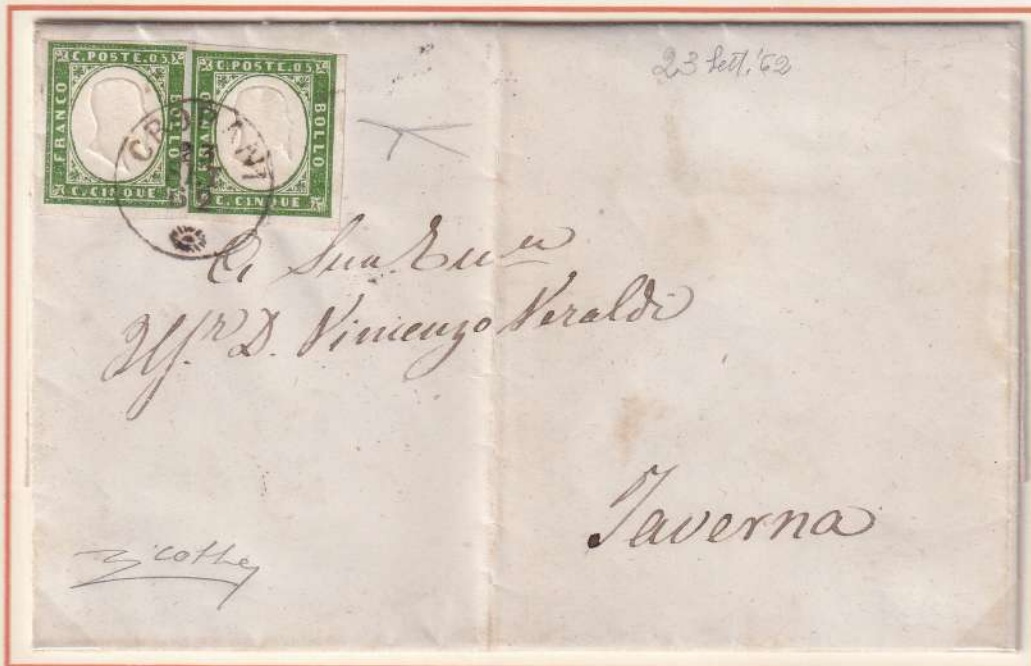 C. POSTE. 05
FRANCO
BOLLO
C. CINQUE
C. POSTE. 05
FRANCO
BOLLO
C. CINQUE
23
23 Sett. '62
A Sua
D. Vincenzo Veraldi
Taverna